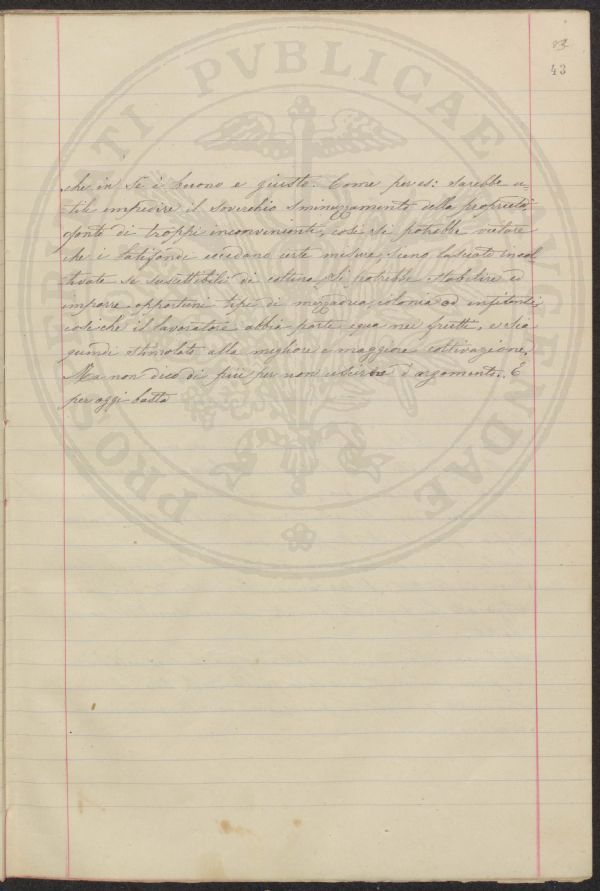 23
43
che in se è buono e giusto. Come per es: sarebbe u-
tile impedire il soverchio sminuzzamento della proprietà,
fonte di troppi inconvenienti, così si potrebbe vietare
che i latifondi eccedano certe misure, sieno lasciati incol
tivati se suscettibili di coltura, si potrebbe stabilire ed
imporre opportuni tipi di mezzadria, colonia od enfiteusi
così che il lavoratore abbia parte equa nei frutti, e sia
quindi stimolato alla migliore e maggiore coltivazione.
Ma non dico di più per non uscire d'argomento. E
per oggi basta
PROSPERITATI PVBLICAE AVGENDAE